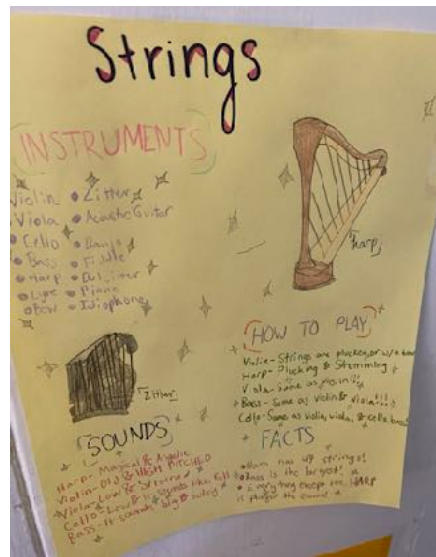 Strings
INSTRUMENTS
Violin • Zitter
Viola • Acoustic Guitar
• Cello • Banjo
• Bass • Fiddle
• Harp
• Lyre • Piano
• Bow • Idiophone
Harp
Zither
HOW TO PLAY
Violin - Strings are plucked, or w/ a bow
Harp - Plucking & Strumming
Viola - Same as violin!!!
Bass - Same as violin & viola!!!!
Cello - Same as violin, viola, &
SOUNDS
Harp - Magical & Angelic
Violin - Old & HIGH PITCHED
Viola - Low &
Cello - Low & It sounds like
Bass - It sounds big &
FACTS
has 47 strings!
Bass is the largest!
Everything except the HARP
is played the same!